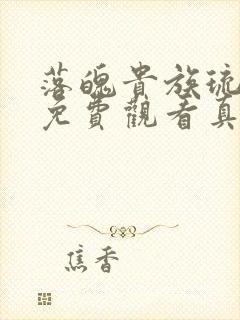 落魄貴族琉
免費觀看真
焦香